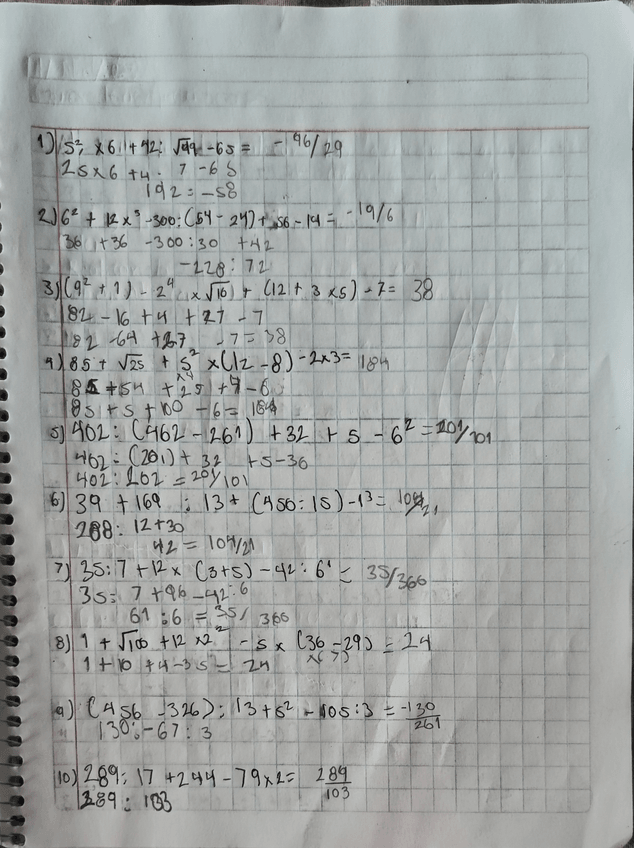 1) 5² x 6 + 42 : √49 - 65 = - 96/29
25 x 6 + 4 . 7 - 65
192 = -58
2) 6² + 12 x 3 - 300 : (54 - 24) + 56 - 14 = -19/6
36 + 36 - 300 : 30 + 42
-228 : 72
3) (9² + 1) - 2⁴ x √16 + (12 + 3 x 5) - 7 = 38
82 - 16 + 4 + 27 - 7
82 - 64 + 27 - 7 = 38
4) 85 + √25 + 5² x (12 - 8) - 2x3 = 184
85 + 54 + 25 + 4 - 6
x4
85 + 5 + 100 - 6 = 184
5) 402 : (462 - 261) + 32 + 5 - 6² = 201/101
402 : (201) + 32 + 5 - 36
402 : 202 = 201/101
6) 39 + 169 : 13 + (450 : 15) - 1³ = 104/21
208 : 12 + 30
42 = 104/21
7) 35 : 7 + 12 x (3+5) - 42 : 6¹ = 35/366
35 : 7 + 96 - 42 : 6
61 : 6 = 35/366
8) 1 + √100 + 12 x 2² - 5 x (36 - 29) = 24
x(7)
1 + 10 + 4 - 35 = 24
9) (456 - 326) : 13 + 5² - 105 : 3 = -130/261
130 : -67 : 3
10) 289 : 17 + 244 - 79 x 2 = 289/103
289 : 103